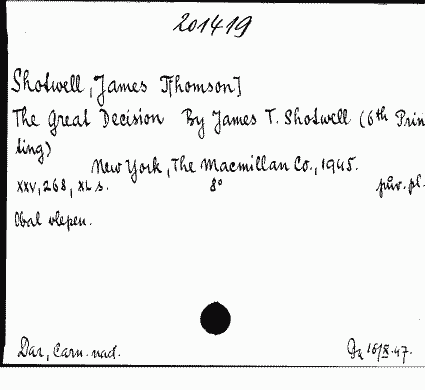 201419
Shotwell, James T[homson]
The Great Decision By James T. Shotwell (6th Prin-
ting)
New York, The Macmillan Co., 1945.
XXV, 268, XL s. 8° pův. pl.
Obal vlepen.
Dar, Carn. nad. 16/X.47.